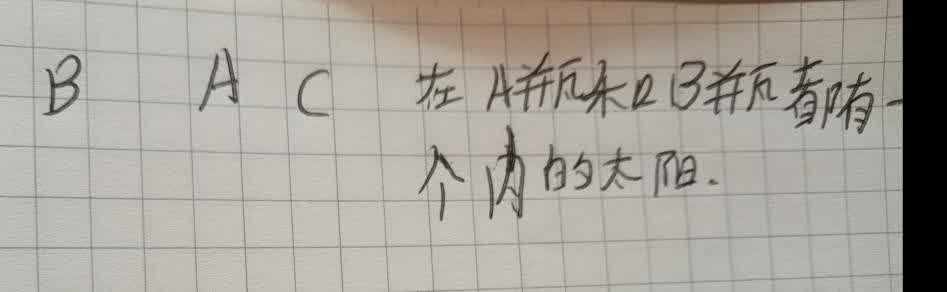 B A C 在A瓶和B瓶都有一
个内的太阳.